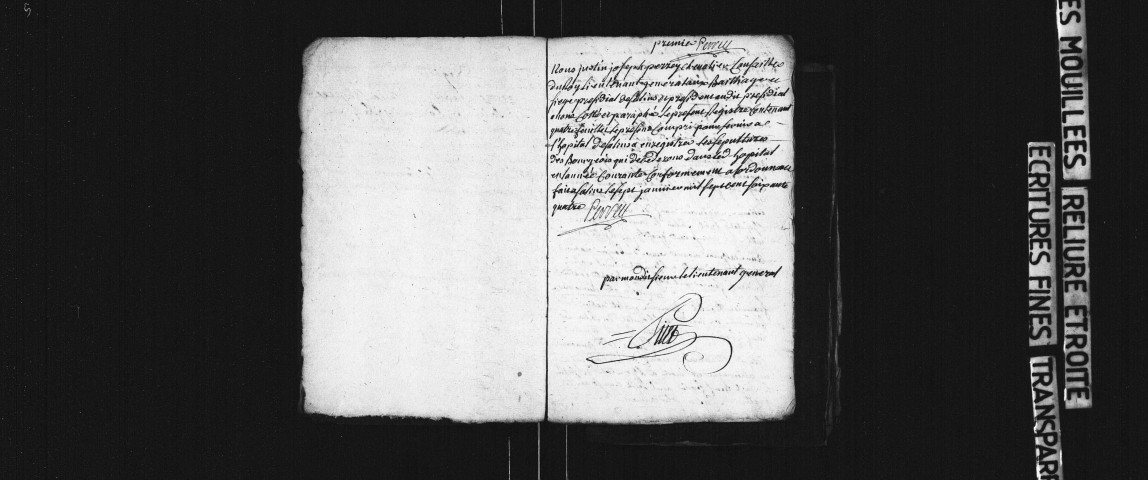 premier Perrey
Nous justin joseph perrey chevalier Conseiller
du Roy Lieutenant general au Bailliage et
siege presidial de salins et president audit presidial
avons Cotté et paraphé Le present Registre Contenant
quatre feuilles Le present Compris pour servir a
l'hopital de salins a enregistrer les sepultures
des Bourgeois qui decederons dans led hopital
en l'année Courante Conformement a lordonnance
fait a salins Le sept janvier mil sept cent soixante
quatre Perrey
par mondit sieur le lieutenant general
ES MOUILLEES RELIURE ETROITE
ECRITURES FINES TRANSPARE